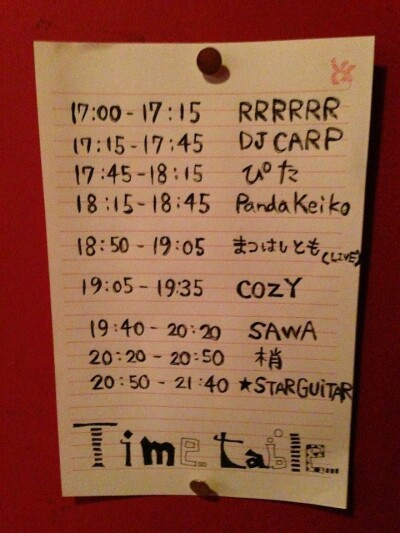 17:00-17:15 RRRRRR
17:15-17:45 DJ CARP
17:45-18:15 ぴた
18:15-18:45 PandaKeiko
18:50-19:05 まつはしとも(LIVE)
19:05-19:35 COZY
19:40-20:20 SAWA
20:20-20:50 梢
20:50-21:40 ★STARGUiTAR
Time table